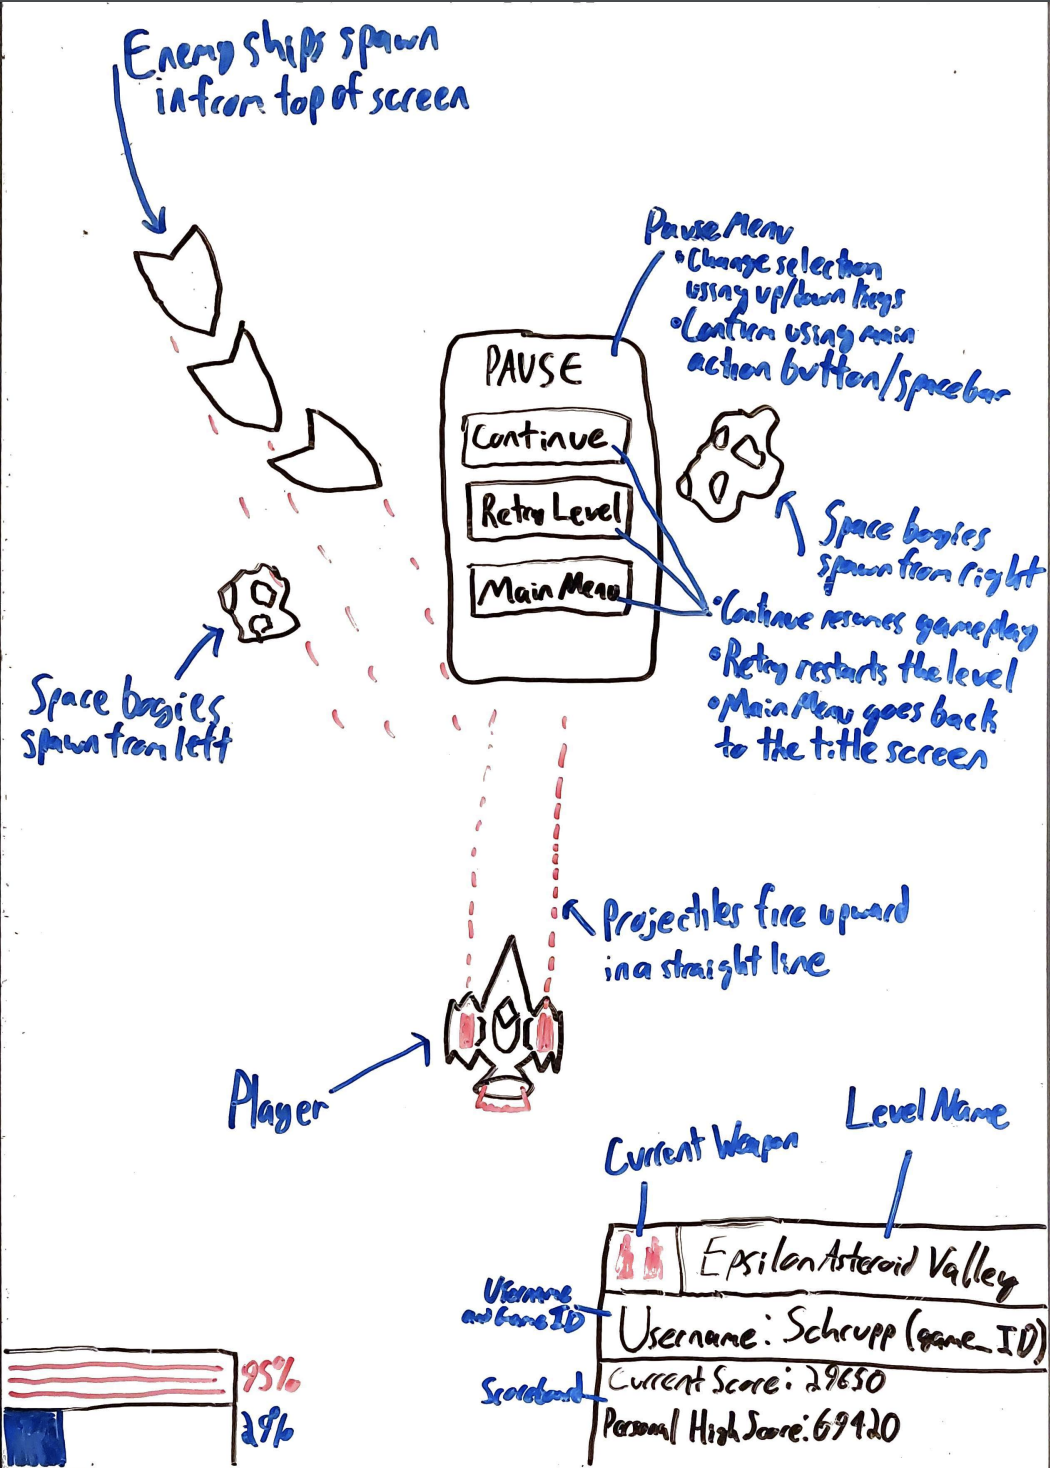 Enemy ships spawn
in from top of screen
Pause Menu
•Change selection
using up/down keys
•Confirm using main
action button/spacebar
PAUSE
Continue
Retry Level
Main Menu
Space bogies
spawn from right
•Continue resumes gameplay
•Retry restarts the level
•Main Menu goes back
to the title screen
Space bogies
spawn from left
Projectiles fire upward
in a straight line
Player
Level Name
Current Weapon
Epsilon Asteroid Valley
Username
and Game ID
Username: Schrupp (game_ID)
Scoreboard
Current Score: 29650
Personal High Score: 69420
95%
29%